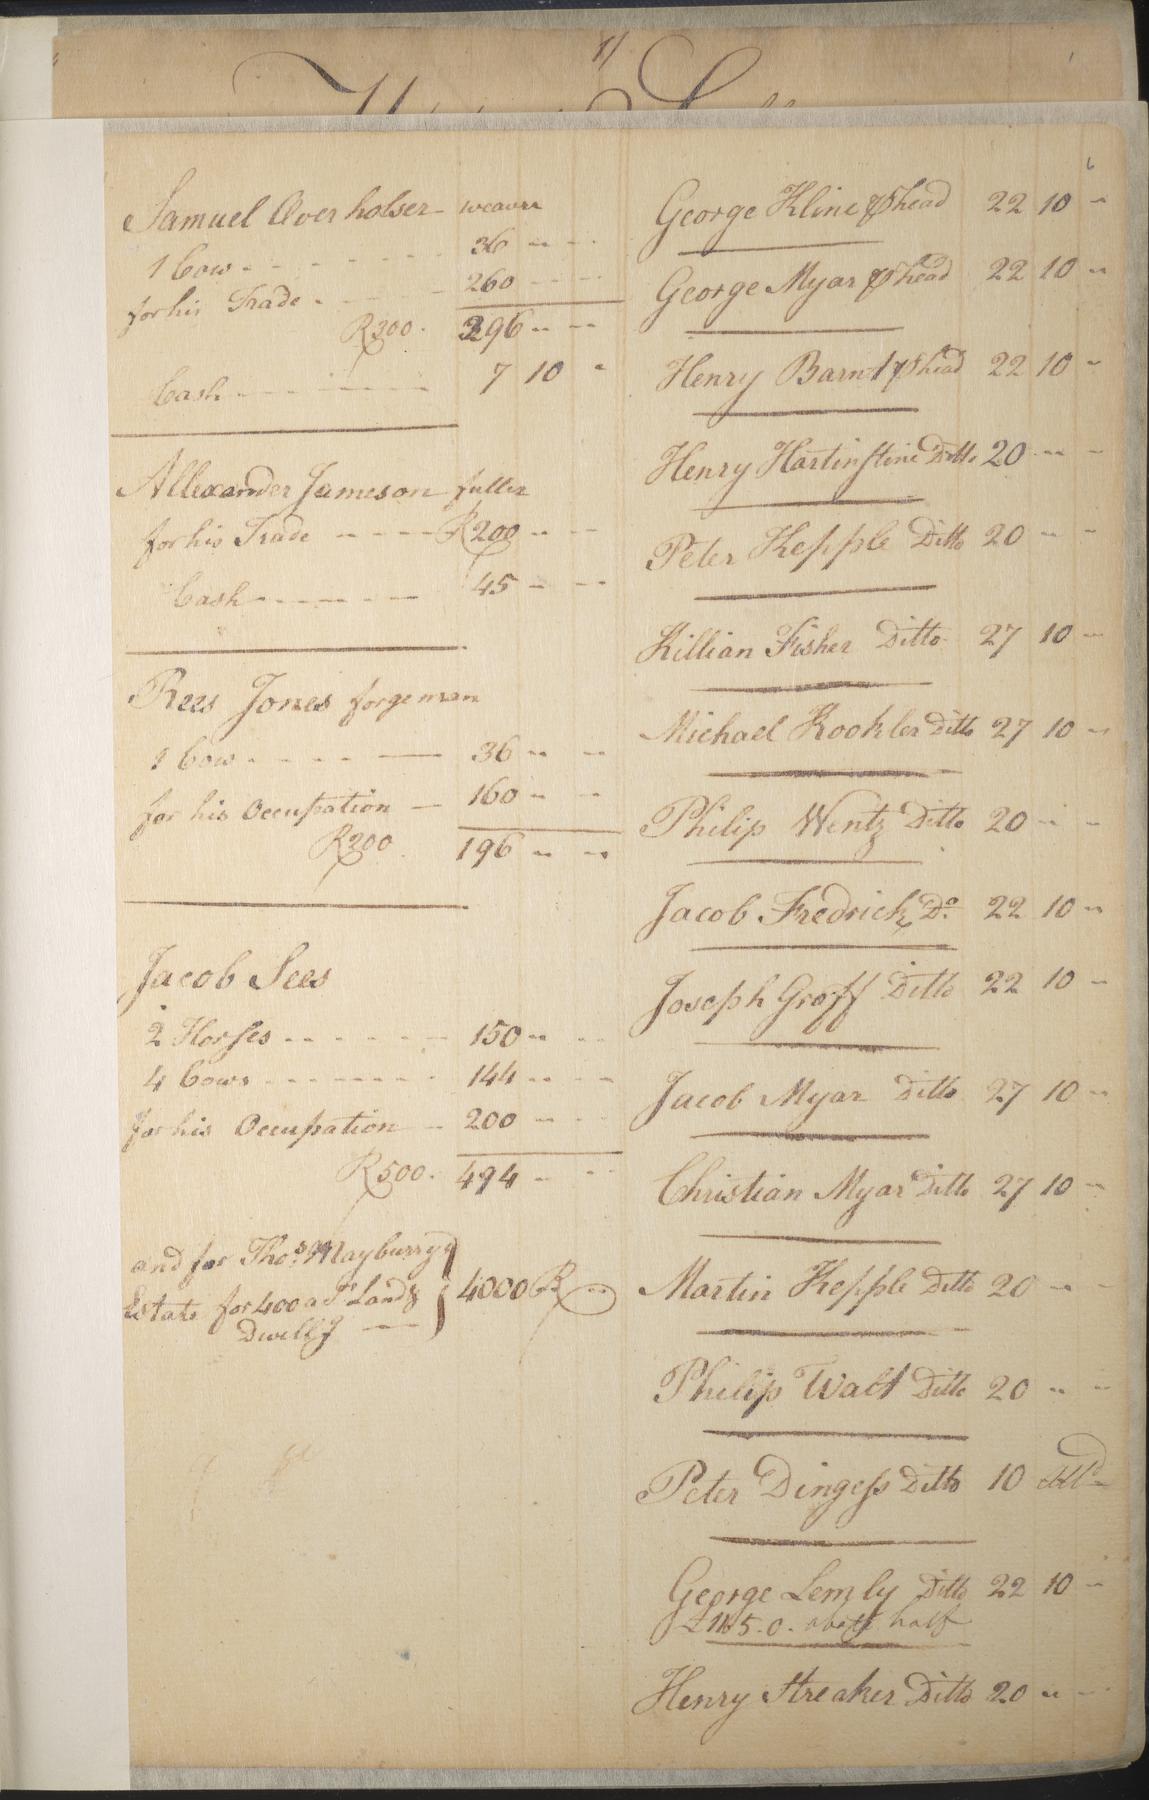 Samuel Overholser weaver
1 Cow 36
for his Trade 260
R300. 296
Cash 7 10
Allexander Jameson fuller
for his Trade R200
Cash 45
Rees Jones forgeman
1 Cow 36
for his Occupation 160
R200 196
Jacob Sees
2 Horses 150
4 Cows 144
for his Occupation 200
R500. 494
and for Thos. Mayburry
Estate for 400 a Land &
Dwellg 4000 R
George Kline head 22 10
George Myar head 22 10
Henry Barnt head 22 10
Henry Hartinstine Ditto 20
Peter Kepple Ditto 20
Killian Fisher Ditto 27 10
Michael Kookler Ditto 27 10
Philip Wentz Ditto 20
Jacob Fredrick Do. 22 10
Joseph Groff Ditto 22 10
Jacob Myar Ditto 27 10
Christian Myar Ditto 27 10
Martin Kepple Ditto 20
Philip Walt Ditto 20
Peter Dingess Ditto 10
George Lemly Ditto 22 10
5.0. half
Henry Streaker Ditto 20